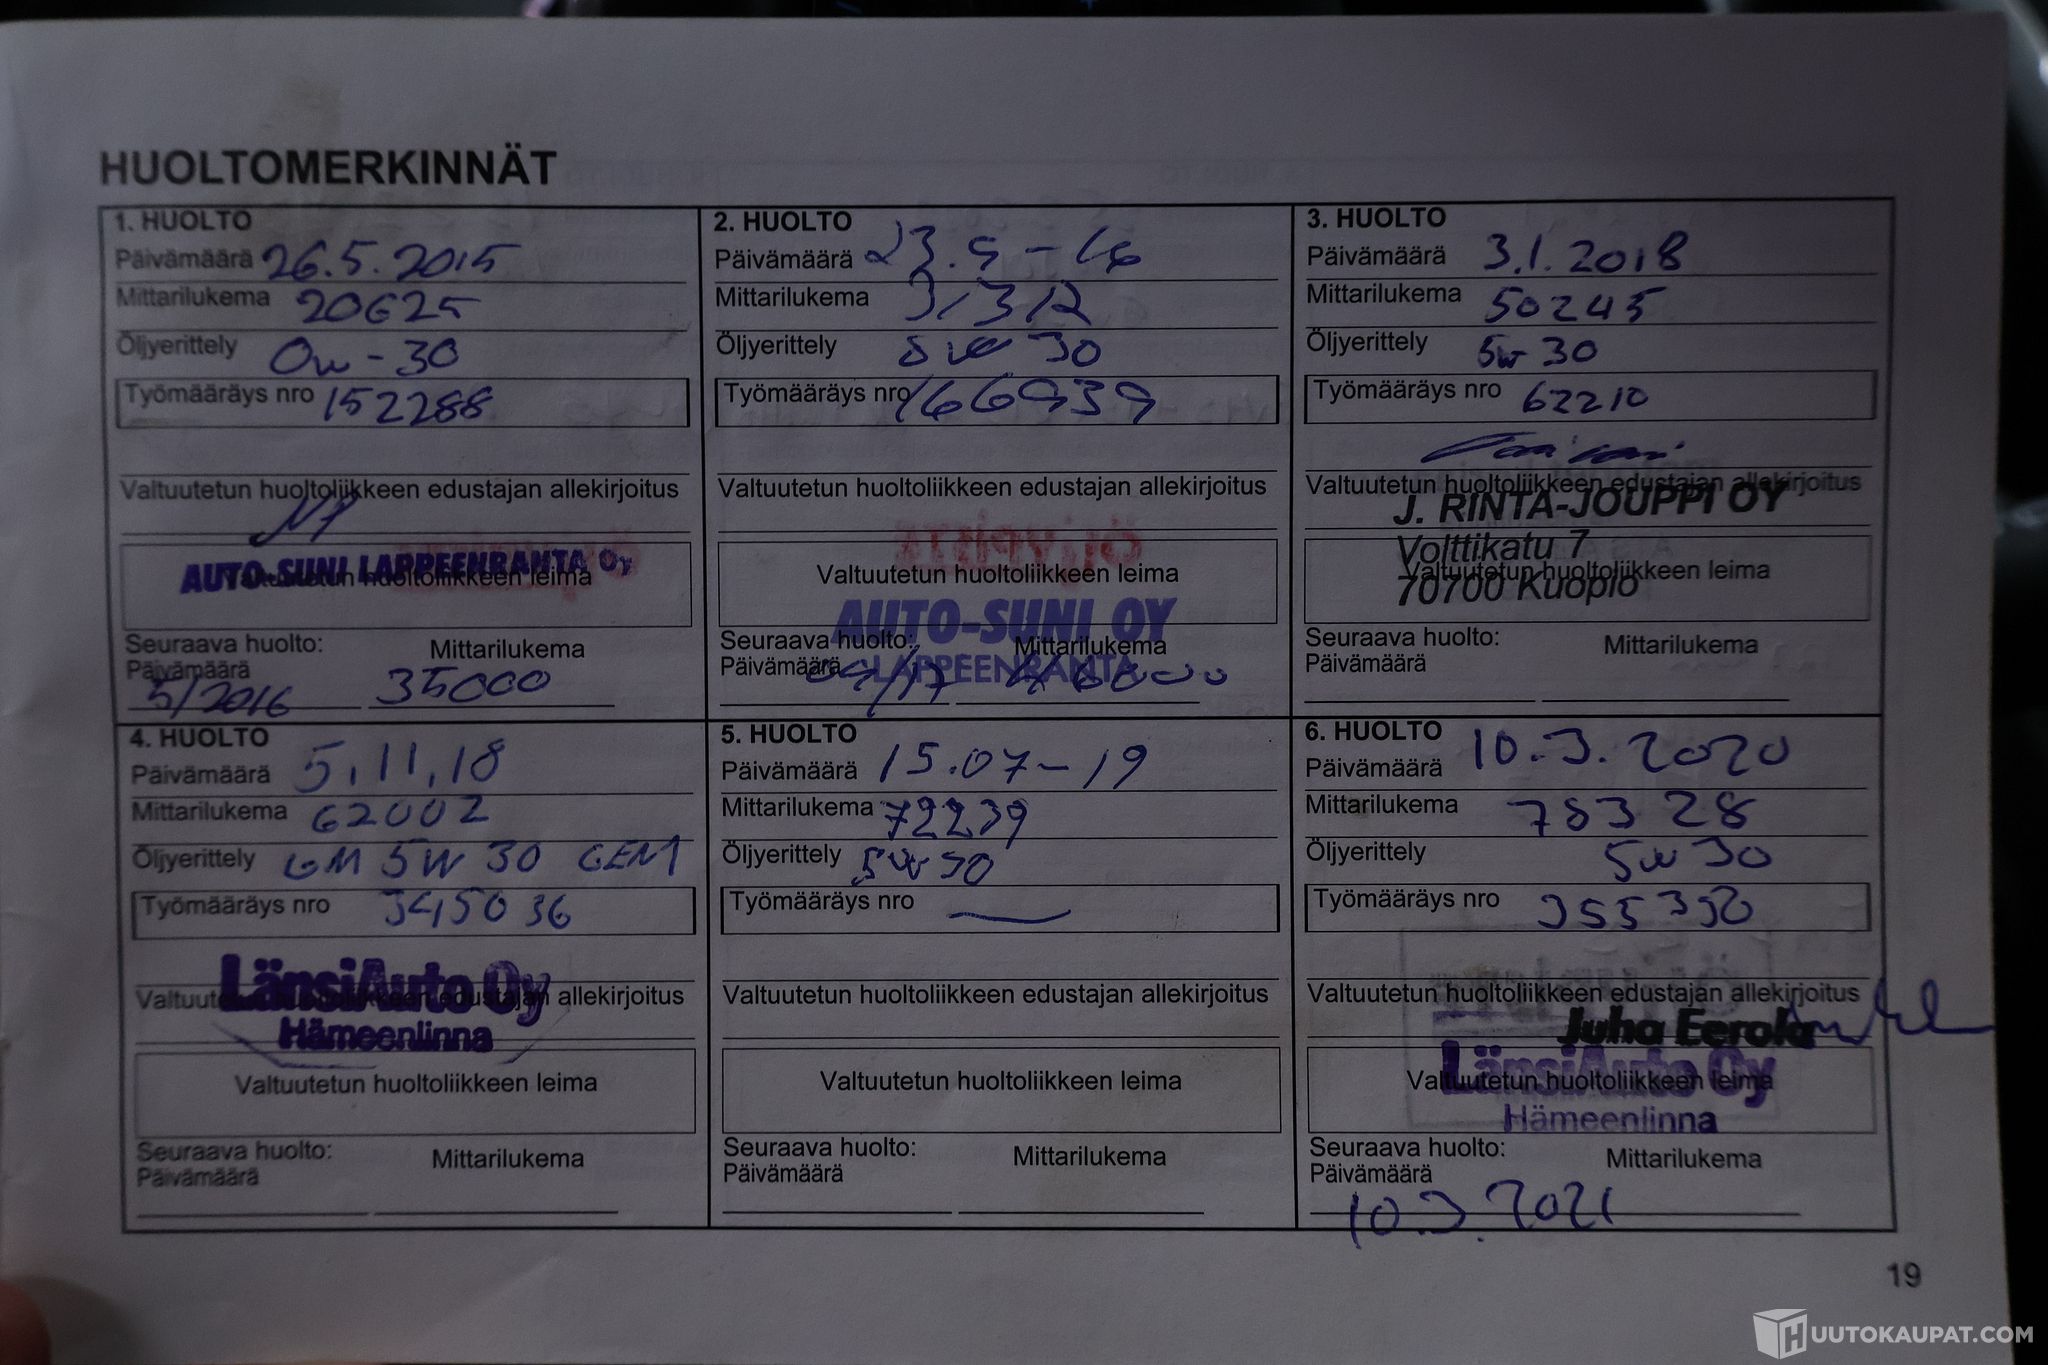 HUOLTOMERKINNÄT
1. HUOLTO
Päivämäärä 26.5.2015
Mittarilukema 20625
Öljyerittely 0w-30
Työmääräys nro 152288
Valtuutetun huoltoliikkeen edustajan allekirjoitus
AUTO-SUNI LAPPEENRANTA Oy
Valtuutetun huoltoliikkeen leima
Seuraava huolto: Mittarilukema
Päivämäärä
5/2016 35000
2. HUOLTO
Päivämäärä 23.9-16
Mittarilukema 31312
Öljyerittely 5W 30
Työmääräys nro 166939
Valtuutetun huoltoliikkeen edustajan allekirjoitus
ÖLJYPISTE
Valtuutetun huoltoliikkeen leima
AUTO-SUNI OY
LAPPEENRANTA
Seuraava huolto: Mittarilukema
Päivämäärä
09/17
3. HUOLTO
Päivämäärä 3.1.2018
Mittarilukema 50245
Öljyerittely 5w 30
Työmääräys nro 62210
Valtuutetun huoltoliikkeen edustajan allekirjoitus
J. RINTA-JOUPPI OY
Volttikatu 7
70700 Kuopio
Valtuutetun huoltoliikkeen leima
Seuraava huolto: Mittarilukema
Päivämäärä
4. HUOLTO
Päivämäärä 5,11,18
Mittarilukema 62002
Öljyerittely GM 5W 30 GEN1
Työmääräys nro 345036
LänsiAuto Oy
Hämeenlinna
Valtuutetun huoltoliikkeen edustajan allekirjoitus
Valtuutetun huoltoliikkeen leima
Seuraava huolto: Mittarilukema
Päivämäärä
5. HUOLTO
Päivämäärä 15.07-19
Mittarilukema 72239
Öljyerittely 5W30
Työmääräys nro
Valtuutetun huoltoliikkeen edustajan allekirjoitus
Valtuutetun huoltoliikkeen leima
Seuraava huolto: Mittarilukema
Päivämäärä
6. HUOLTO
Päivämäärä 10.3.2020
Mittarilukema 78328
Öljyerittely 5w 30
Työmääräys nro 355390
Valtuutetun huoltoliikkeen edustajan allekirjoitus
Juha Eerola
LänsiAuto Oy
Hämeenlinna
Valtuutetun huoltoliikkeen leima
Seuraava huolto: Mittarilukema
Päivämäärä
10.3.2021
19
HUUTOKAUPAT.COM